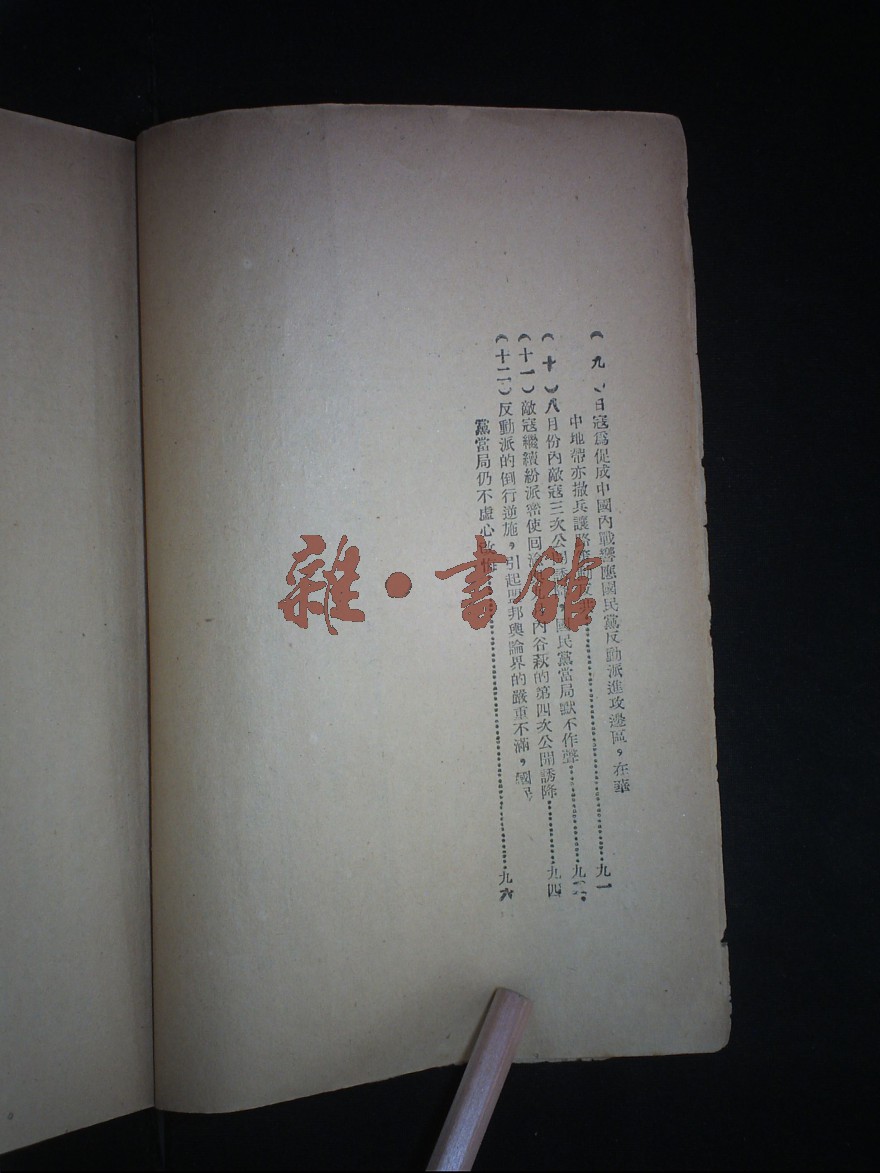 （九）日寇爲促成中國內戰響應國民黨反動派進攻邊區，在華
中地帶亦撤兵讓路……九一
（十）八月份內敵寇三次公開誘，國民黨當局默不作聲……九
（十一）敵寇繼續紛派密使回內谷萩的第四次公開誘降……九四
（十二）反動派的倒行逆施，引起盟邦輿論界的嚴重不滿，國民
黨當局仍不虛心……九六
雜·書館